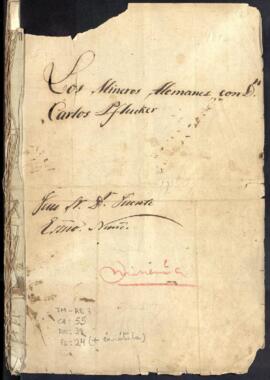 Los Mineros Alemanes con Dn
Carlos Pflucker
Juez Sr. Dr. Fuente
Esno. Nuñes
Minería
TM-RE 3
CA: 55
DO: 32
FS: 24 (+ carátula)